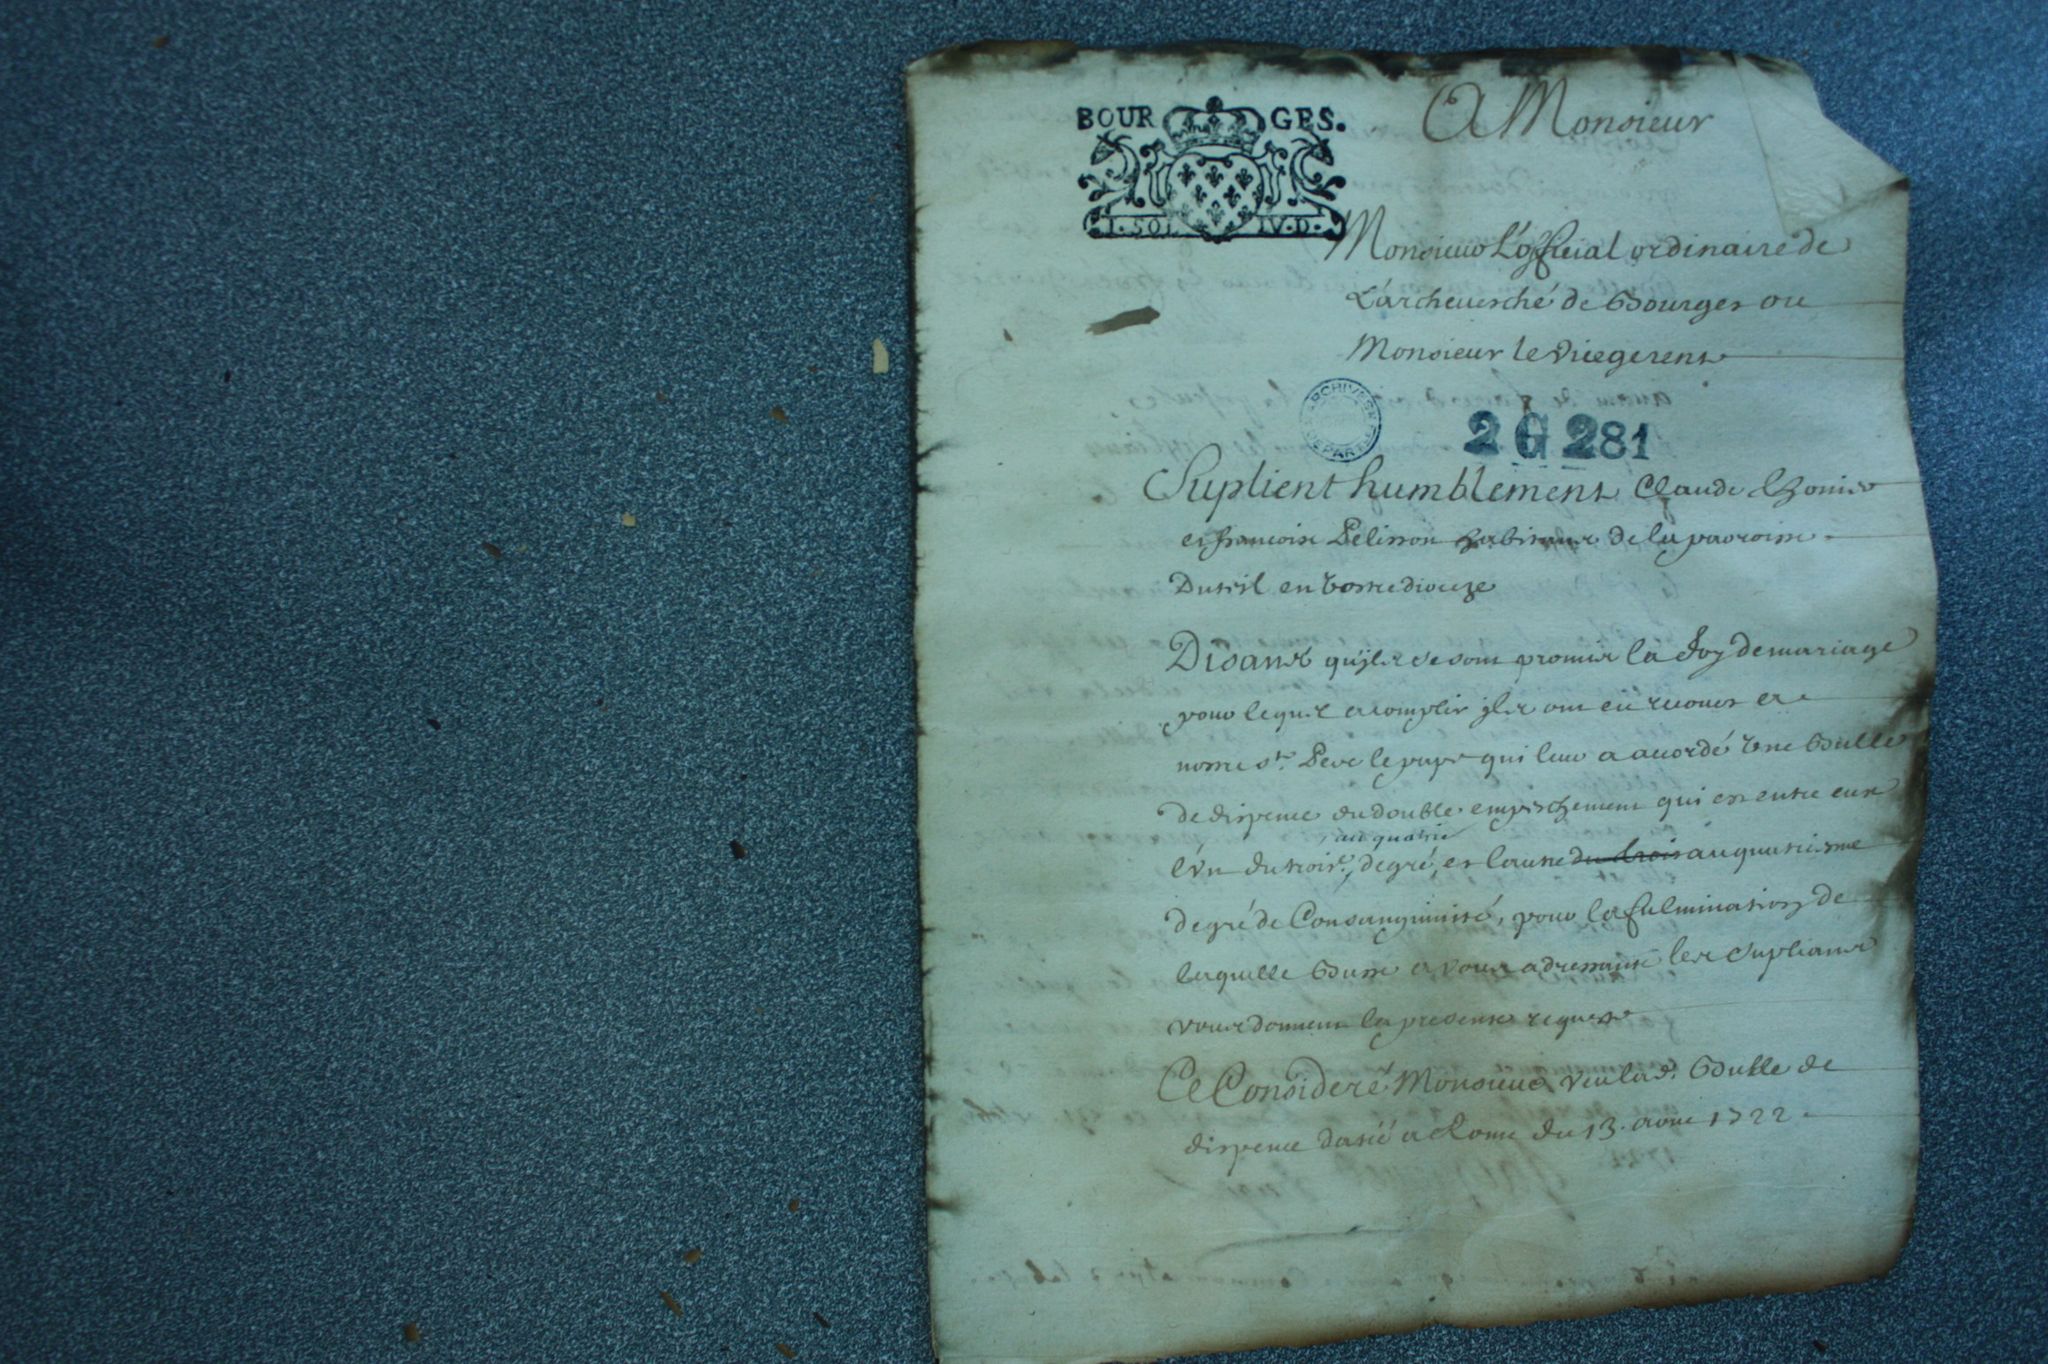 BOURGES.
I. SOL IV. D.
A Monsieur
Monsieur L'official ordinaire de
L'archeuesché de Bourges ou
Monsieur le vicegerent
ARCHIVES
DEPART
2 G 281
Suplient humblement Claude
et françoise Pelisson habitans de la parroisse
en vostre dioceze
Disant qu'jls se sont promis la foy de mariage
pour lequel acomplir jls ont eü recours a
nostre st. Pere le pape qui leur a acordé vne Bulle
de dispence du double empeschement qui est entre eux
au quatrie
l'vn du trois.e degré, et l'autre du trois au quatriesme
degré de Consanguinité, pour la fulmination de
laquelle Bulle a vous adressante les supliants
vous donnent la presente requeste
Ce Consideré Monsieur, veu lad. Bulle de
dispence datée a Rome du 13. 1722